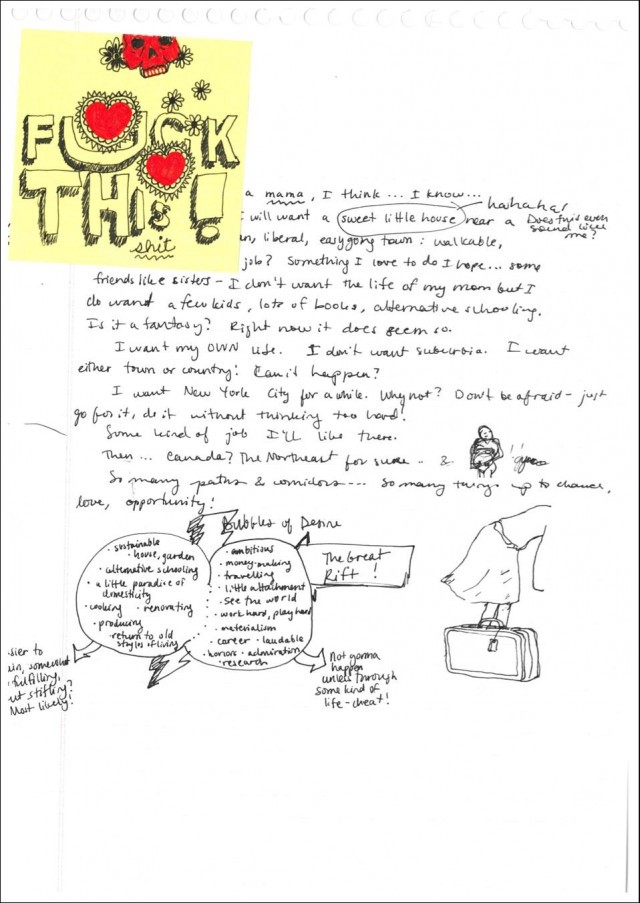 FUCK
THIS!
shit
a mama, I think... I know...
hahaha!
will want a sweet little house near a
Does this even
sound like
me?
n, liberal, easygoing town: walkable,
job? Something I love to do I hope... some
friends like sisters - I don't want the life of my mom but I
do want a few kids, lots of books, alternative schooling.
Is it a fantasy? Right now it does seem so.
I want my OWN life. I don't want suburbia. I want
either town or country! Can it happen?
I want New York City for a while. Why not? Don't be afraid - just
go for it, do it without thinking too hard!
Some kind of job I'll like there.
Then... Canada? The Northeast for sure.. &
So many paths & corridors... So many things up to chance,
love, opportunity!
Bubbles of Desire
• sustainable
house, garden
• alternative schooling
• a little paradise of
domesticity
• cooking • renovating
• producing
• return to old
styles of living
• ambitious
• money-making
• travelling
• little attachment
• see the world
• work hard, play hard
• materialism
• career • laudable
• honors • admiration
• research
The Great
Rift!
sier to
in, somewhat
fulfilling,
ut stifling?
Most likely!
Not gonna
happen
unless through
some kind of
life-cheat!